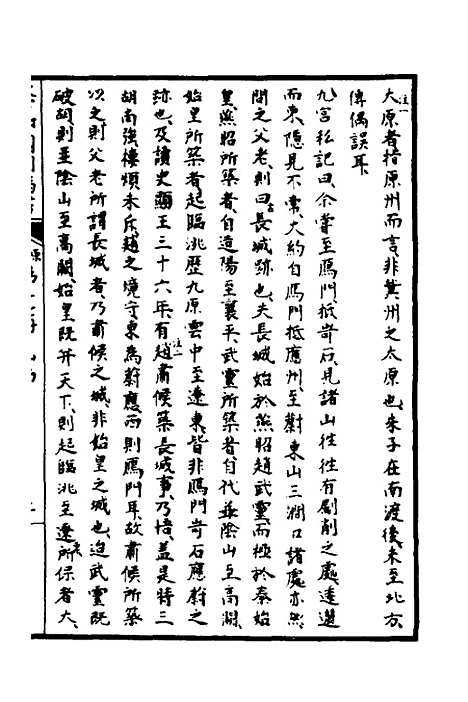 大原者指原州而言非冀州之太原也朱子在南渡後未至北方
傳偶誤耳
九宮私記曰余嘗至鴈門抵岢石見諸山往往有剧削之處逶迤
而東隱見不常大約自鴈門抵應州至蔚東山三澗口諸處亦然
問之父老則曰長城跡也夫長城始於燕昭趙武靈而極於秦始
皇燕昭所築者自造陽至襄平武靈所築者自代並陰山至高闕
始皇所築者起臨洮歷九原雲中至遼東皆非鴈門岢石應蔚之
跡也及讀史顯王三十六年有趙肅侯築長城事乃悟蓋是時三
胡尚強樓煩未斥趙之境守東為蔚應西則鴈門耳故肅侯所築
以之則父老所謂長城者乃肅侯之城非始皇之城也迨武靈既
破胡則並陰山至高闕始皇既并天下則起臨洮至遼所保者大